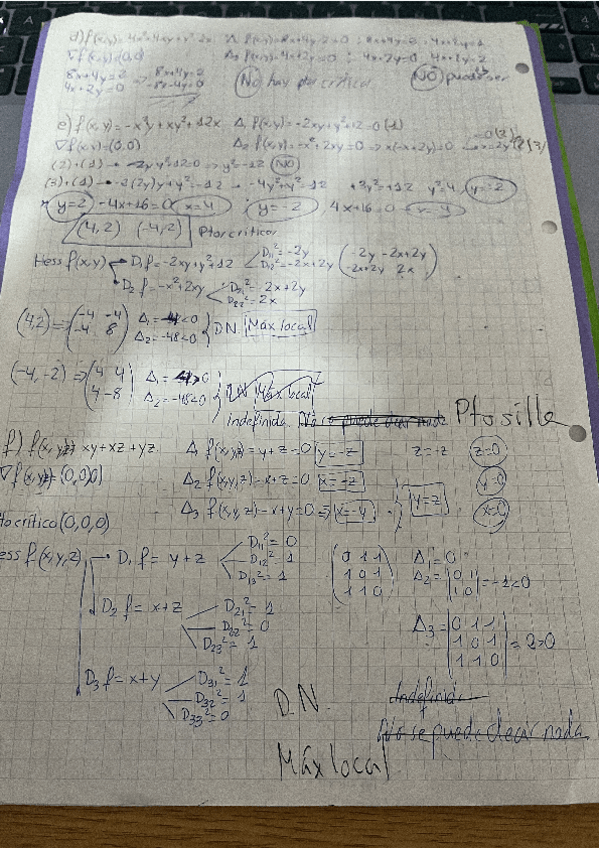 d) f(x,y)= 4x²+4xy+y²-2x Δ₁ f(x,y)=8x+4y-2=0 ; 8x+4y=2 ; 4x+2y=1
∇f(x,y)=(0,0) Δ₂ f(x,y)=4x+2y=0 ; 4x+2y=0
8x+4y=2 => 8x+4y=2 (No) hay pto crítico (NO) puede ser
4x+2y=0 -8x-4y=0
e) f(x,y)=-x²y+xy²+12x Δ₁ f(x,y)=-2xy+y²+12=0 (1)
∇f(x,y)=(0,0) Δ₂ f(x,y)=-x²+2xy=0 => x(-x+2y)=0 x=0(2) x=2y(3)
(2)+(1) → y²+12=0 => y²=-12 (NO)
(3)+(1) → -2(2y)y+y²=-12 → -4y²+y²=-12 y²=4 y=-2
y=2 -4x+16=0 x=4 ; y=-2 4x+16=0 x=-4
(4,2) (-4,-2) Ptos críticos
Hess f(x,y) D₁f=-2xy+y²+12 D₁₁²=-2y D₁₂²=-2x+2y (-2y -2x+2y
D₂f=-x²+2xy D₂₁²=-2x+2y D₂₂²=2x -2x+2y 2x)
(4,2) => (-4 -4 Δ₁=-4<0 } D.N. Máx local
-4 8) Δ₂=-48<0
(-4,-2) => (4 4 Δ₁=4>0
4 -8) Δ₂=-48<0 indefinida Pto silla
f) f(x,y,z) xy+xz+yz Δ₁ f(x,y,z)=y+z=0 y=-z z=-z z=0
∇f(x,y,z)=(0,0,0) Δ₂ f(x,y,z)=x+z=0 x=-z y=z y=0
Δ₃ f(x,y,z)=x+y=0 => x=-y x=0
Pto crítico (0,0,0)
Hess f(x,y,z) D₁f=y+z D₁₁²=0 D₁₂²=1 D₁₃²=1 (0 1 1 Δ₁=0
1 0 1 Δ₂=|0 1
1 1 0) 1 0|=-1<0
D₂f=x+z D₂₁²=1 D₂₂²=0 D₂₃²=1 Δ₃=|0 1 1
1 0 1
1 1 0|=2>0
D₃f=x+y D₃₁²=1 D₃₂²=1 D₃₃²=0
D.N. Indefinida
No se puede decir nada
Máx local